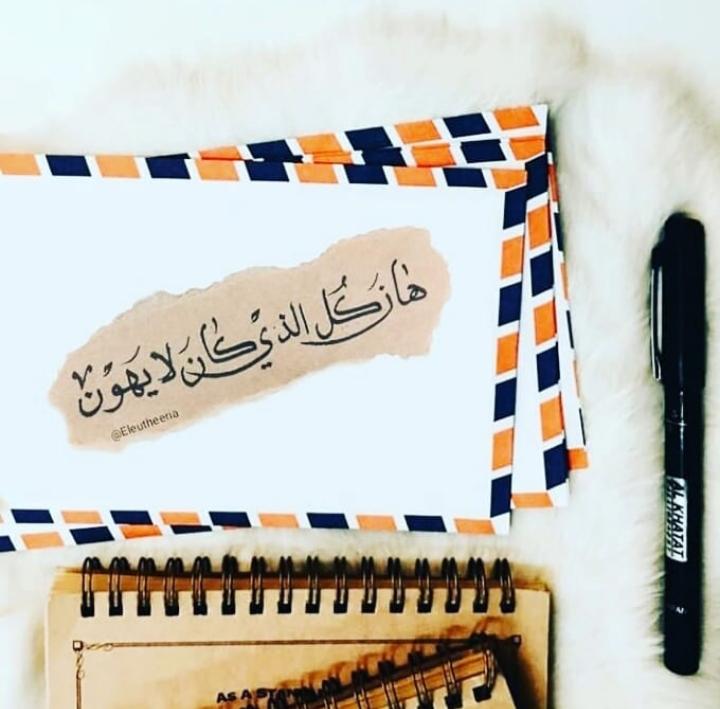 هَانَ كُل الذيْ كَان لَا يَهَوْن
@Eleutheeria
AL KHATAT
AS A